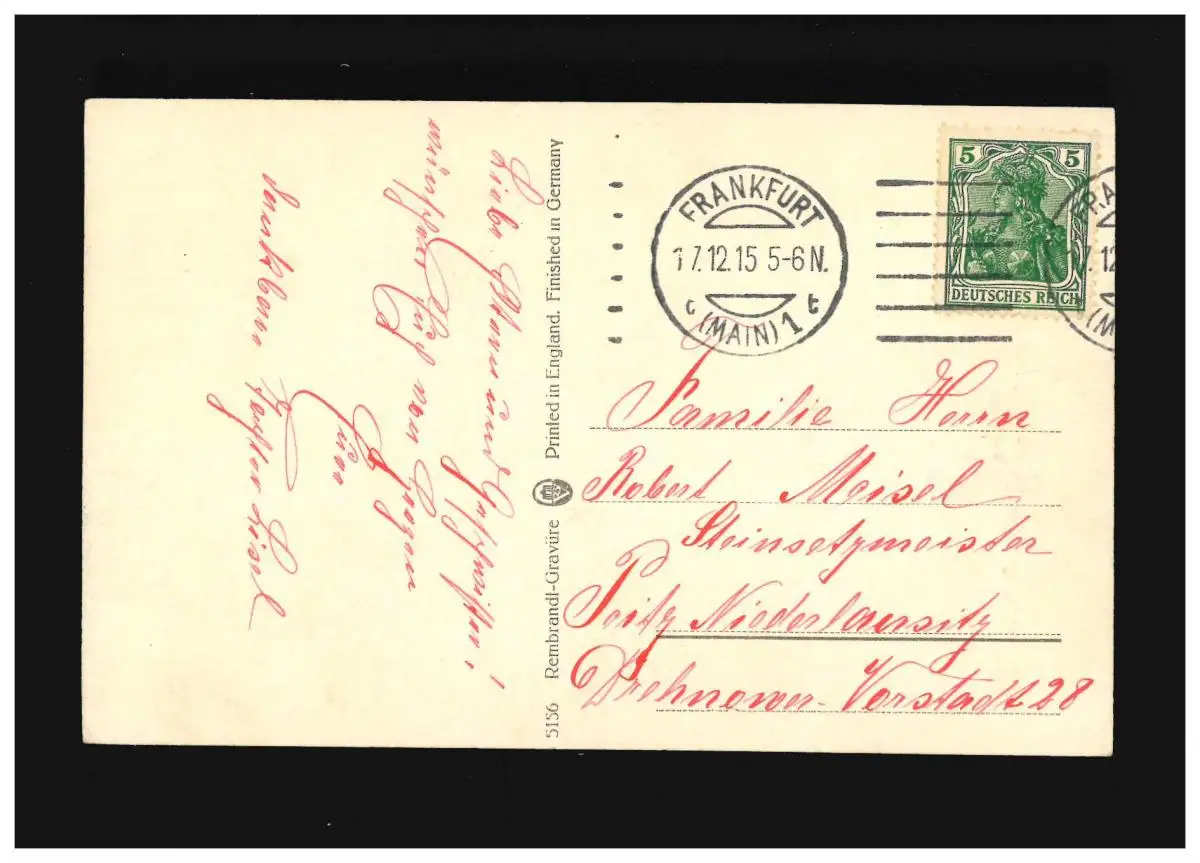 FRANKFURT
17.12.15 5-6 N.
c (MAIN) 1 t
5 5
DEUTSCHES REICH
FRA
17.12
(M
Familie Herrn
Robert Meisel
Steinsetzmeister
Peitz Niederlausitz
Drehnower-Vorstadt 28
5156 Rembrandt-Gravüre Printed in England. Finished in Germany
Liebe Eltern und Geschwister!
wünscht
von Herzen
Eure
dankbare Tochter Liesel